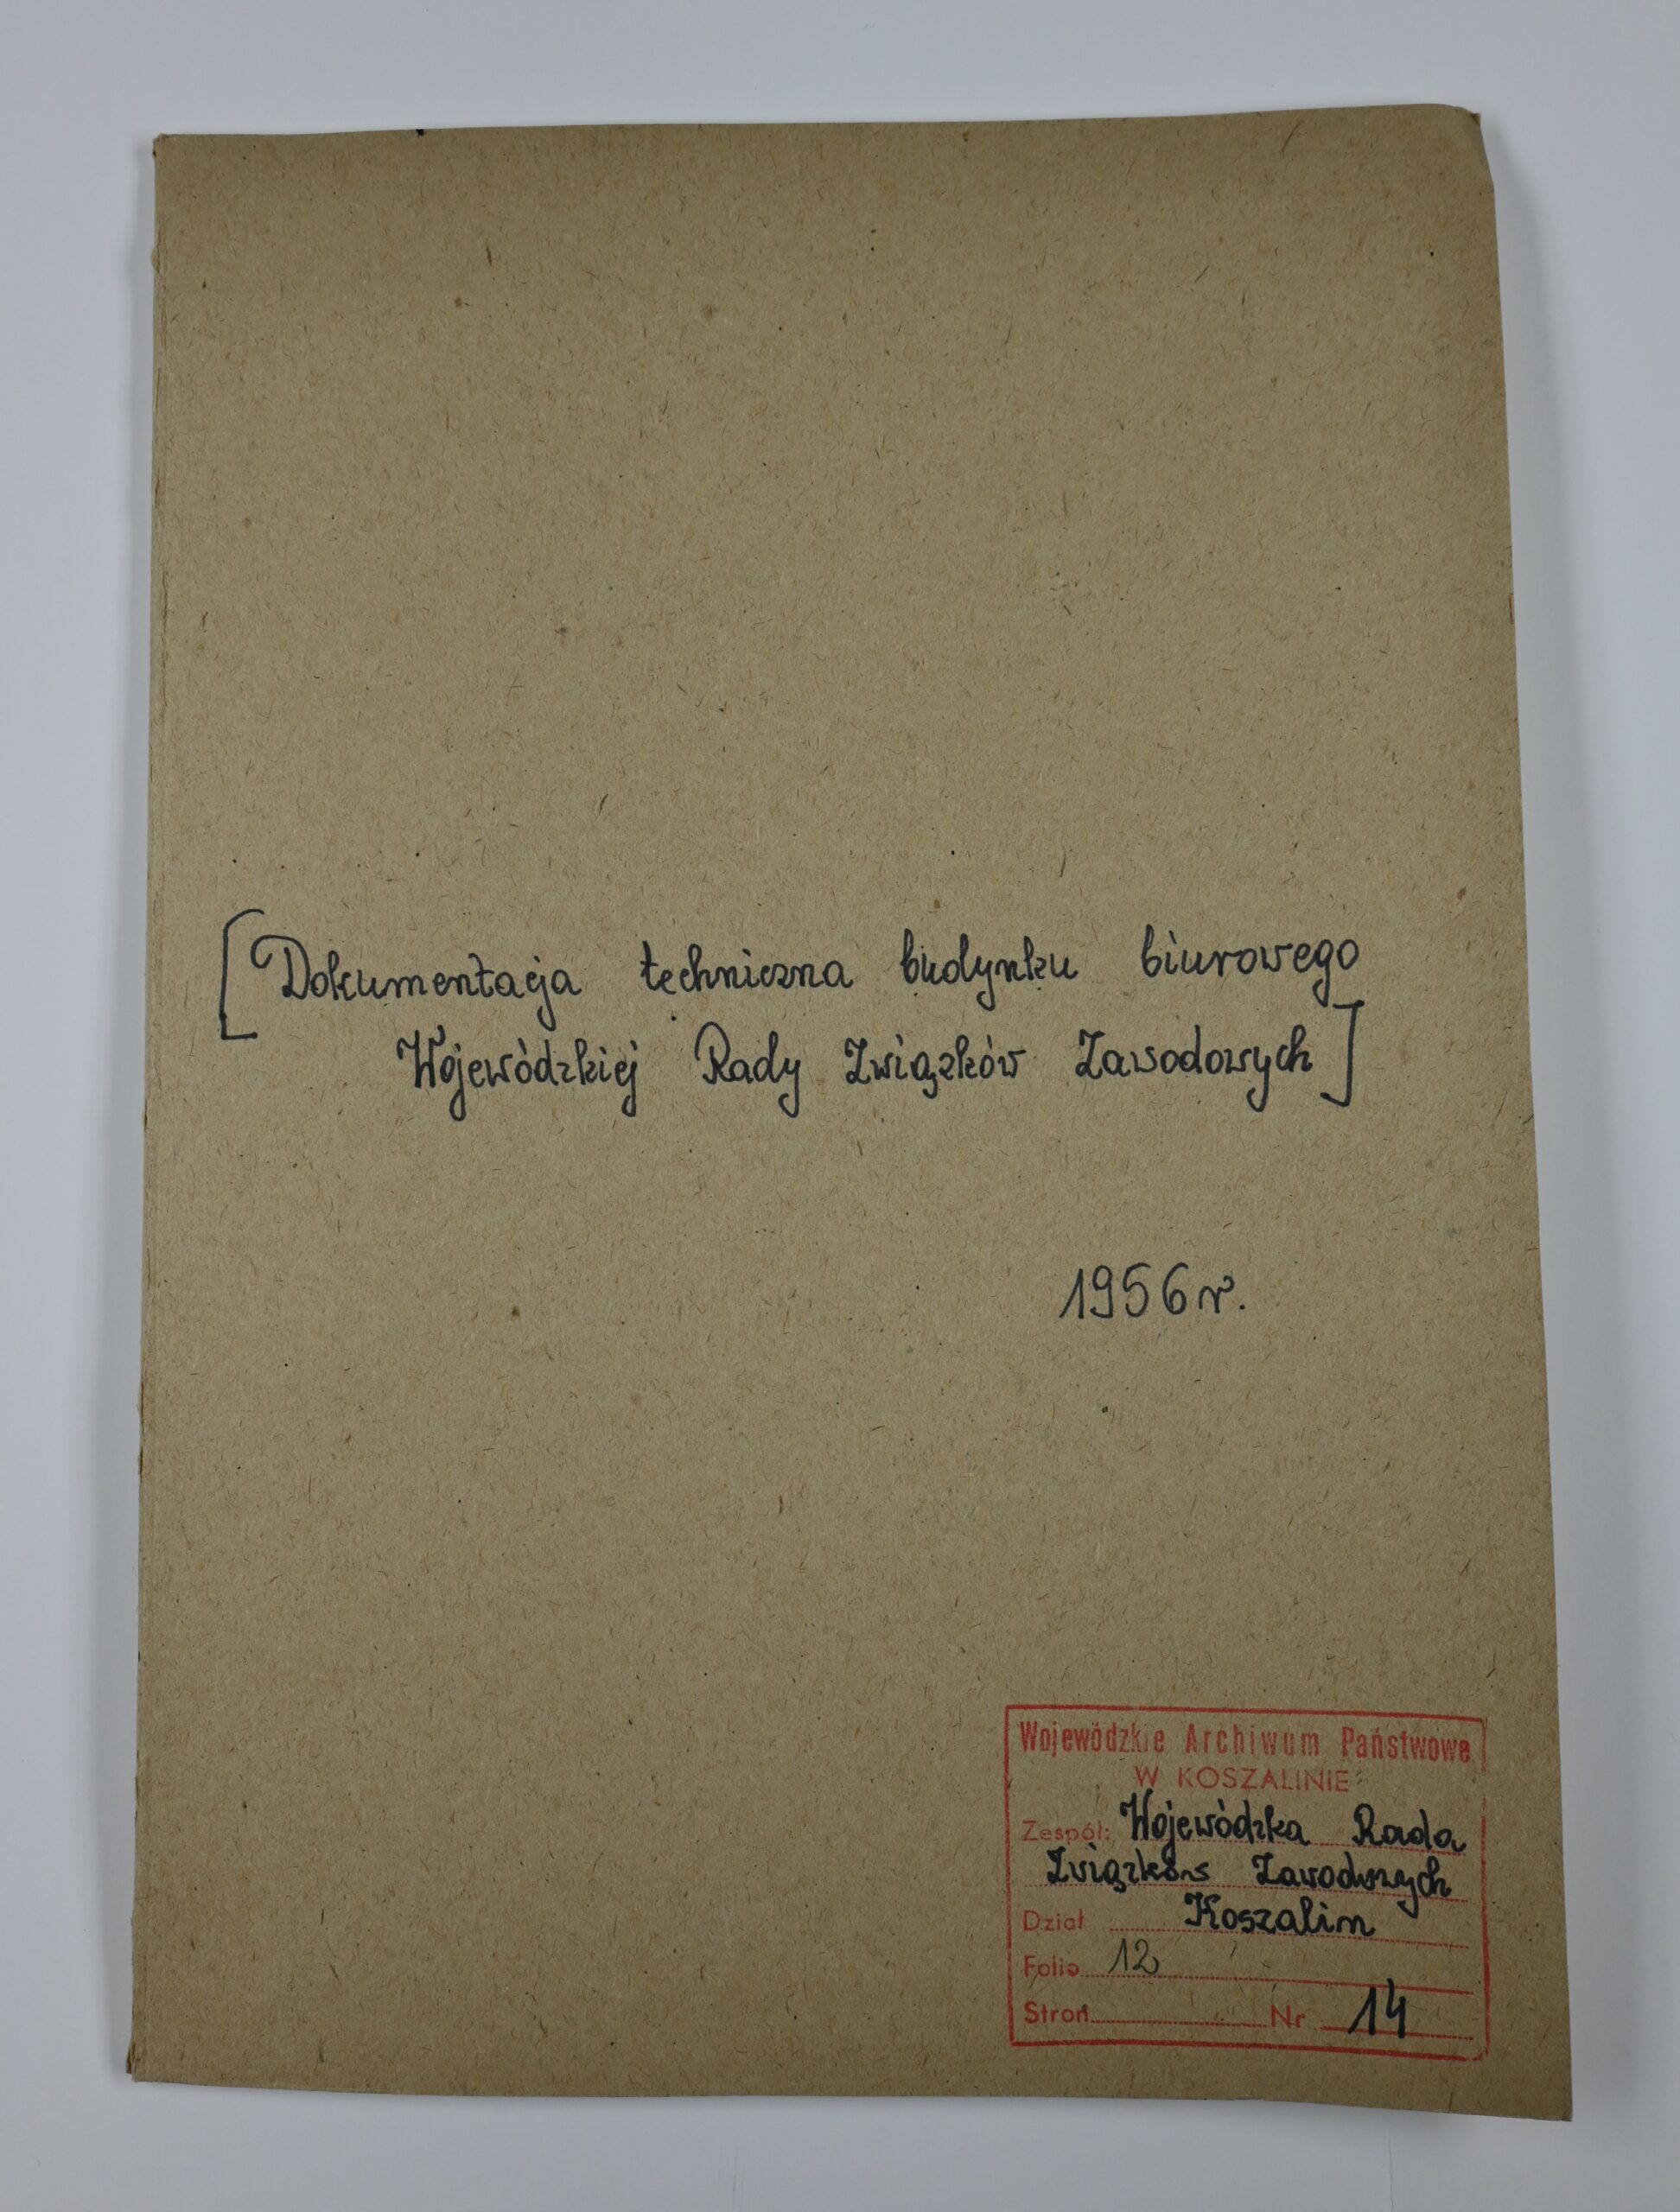 [Dokumentacja techniczna budynku biurowego
Wojewódzkiej Rady Związków Zawodowych]
1956 r.
Wojewódzkie Archiwum Państwowe
W KOSZALINIE
Zespół: Wojewódzka Rada
Związków Zawodowych
Dział Koszalin
Folio 12
Stron Nr 14